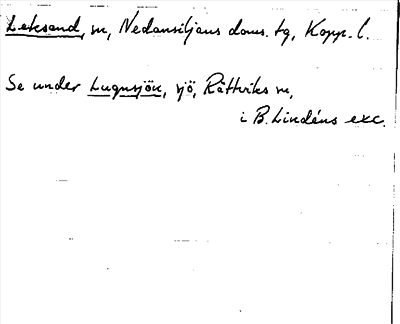 Leksand, sn, Nedansiljans doms. tg, Kopp. l.
Se under Lugnsjön, sjö, Rättviks sn,
i B. Lindéns exc.